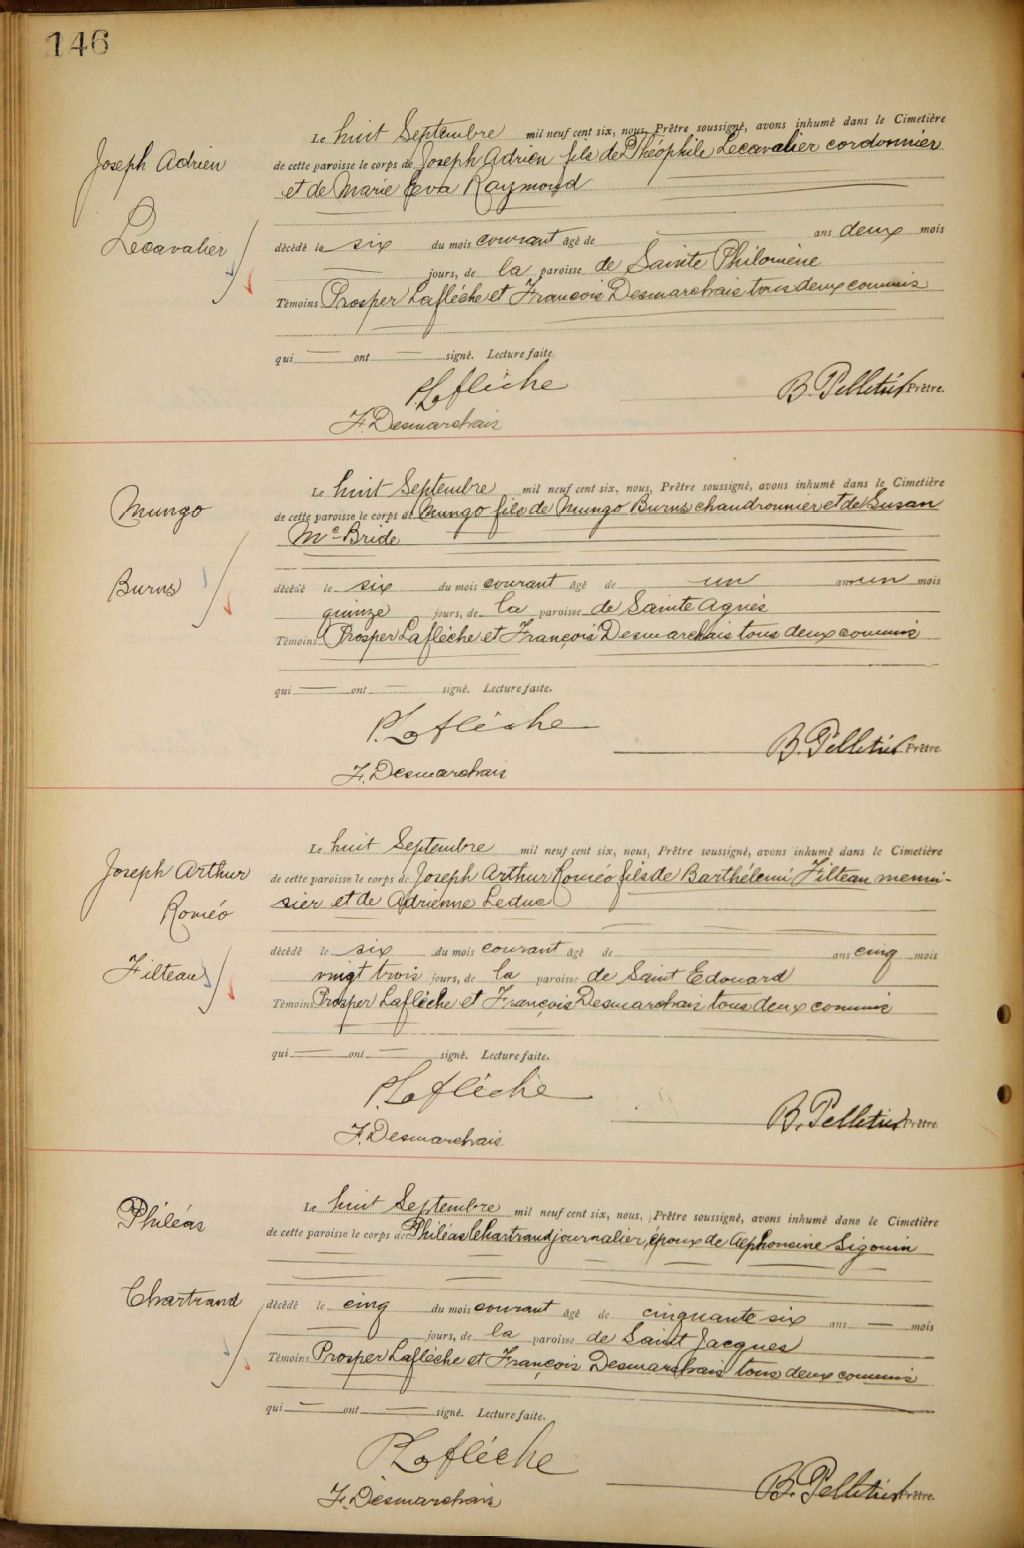 146
Le huit Septembre mil neuf cent six, nous, Prêtre soussigné, avons inhumé dans le Cimetière
Joseph Adrien
de cette paroisse le corps de Joseph Adrien fils de Théophile Lecavalier cordonnier
et de Marie Eva Raymond
Lecavalier
décédé le six du mois courant âgé de ans deux mois
jours, de la paroisse de Sainte Philomène
Témoins Prosper Laflèche et François Desmarchais tous deux commis
qui ont signé. Lecture faite.
P. Laflèche
B. Pelletier Prêtre.
F. Desmarchais
Le huit Septembre mil neuf cent six, nous, Prêtre soussigné, avons inhumé dans le Cimetière
Mungo
de cette paroisse le corps de Mungo fils de Mungo Burns chaudronnier et de Susan
Mc Bride
Burns
décédé le six du mois courant âgé de un ans un mois
quinze jours, de la paroisse de Sainte Agnès
Témoins Prosper Laflèche et François Desmarchais tous deux commis
qui ont signé. Lecture faite.
P. Laflèche
B. Pelletier Prêtre.
F. Desmarchais
Le huit Septembre mil neuf cent six, nous, Prêtre soussigné, avons inhumé dans le Cimetière
Joseph Arthur
de cette paroisse le corps de Joseph Arthur Roméo fils de Barthélemi Filteau menui-
Roméo
sier et de Adrienne Leduc
Filteau
décédé le six du mois courant âgé de ans cinq mois
vingt trois jours, de la paroisse de Saint Edouard
Témoins Prosper Laflèche et François Desmarchais tous deux commis
qui ont signé. Lecture faite.
P. Laflèche
B. Pelletier Prêtre.
F. Desmarchais
Le huit Septembre mil neuf cent six, nous, Prêtre soussigné, avons inhumé dans le Cimetière
Philéas
de cette paroisse le corps de Philéas Chartrand journalier, époux de Alphonsine Sigouin
Chartrand
décédé le cinq du mois courant âgé de cinquante six ans mois
jours, de la paroisse de Saint Jacques
Témoins Prosper Laflèche et François Desmarchais tous deux commis
qui ont signé. Lecture faite.
P. Laflèche
B. Pelletier Prêtre.
F. Desmarchais